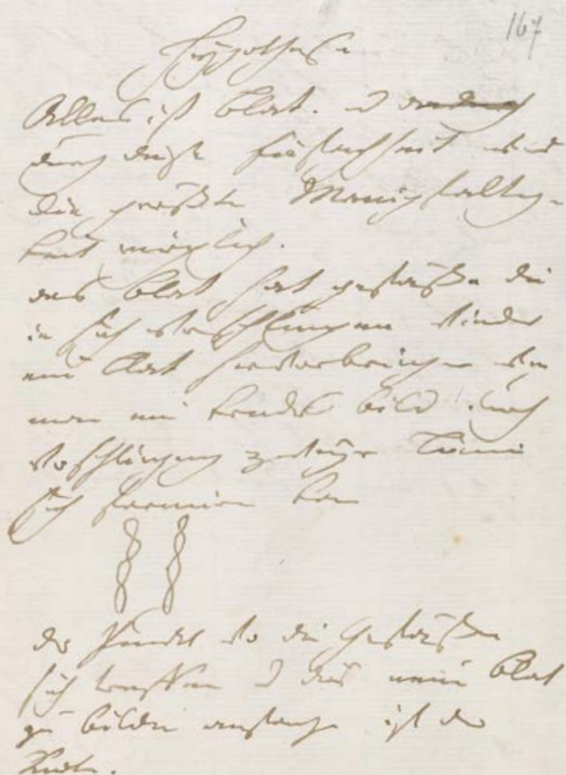 167
Hypothese
Alles ist Blat. und
durch diese Einfachheit wird
die größte Manigfaltig-
keit möglich.
das Blat hat Gefäße die
in sich verschlungen wieder
ein Blat hervorbringen
man ein Bild durch
Verschlingung zweier
sich
der Punckt wo die Gefäße
sich treffen und das neue Blat
zu bilden anfangen ist der